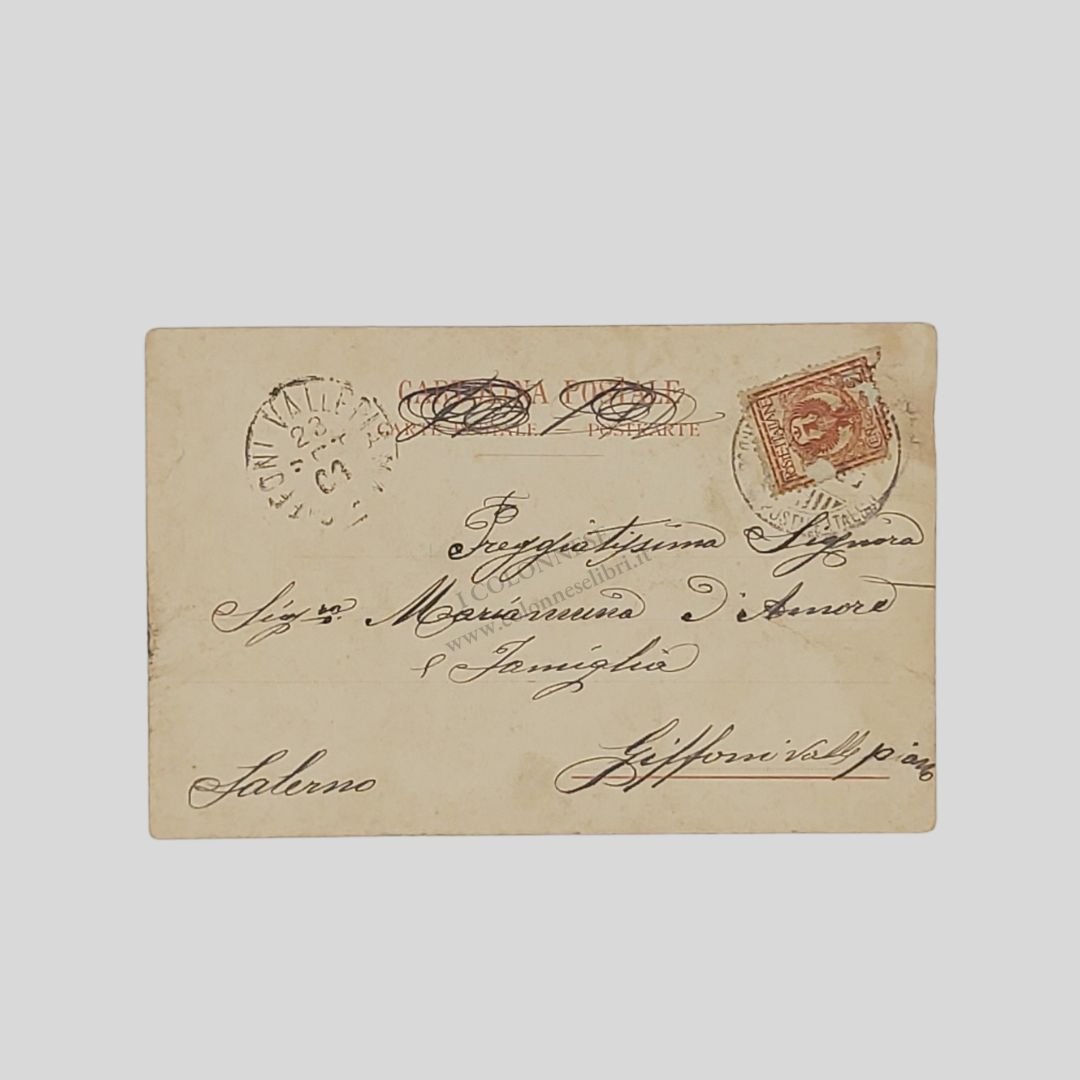 CARTOLINA POSTALE
CARTE POSTALE — POSTKARTE
GIFFONI VALLE
23
POSTE ITALIANE
Preggiatissima Signora
Sigra. Mariannina d'Amore
e Famiglia
Giffoni Valle piana
Salerno
I COLONNESE
www.colonneselibri.it